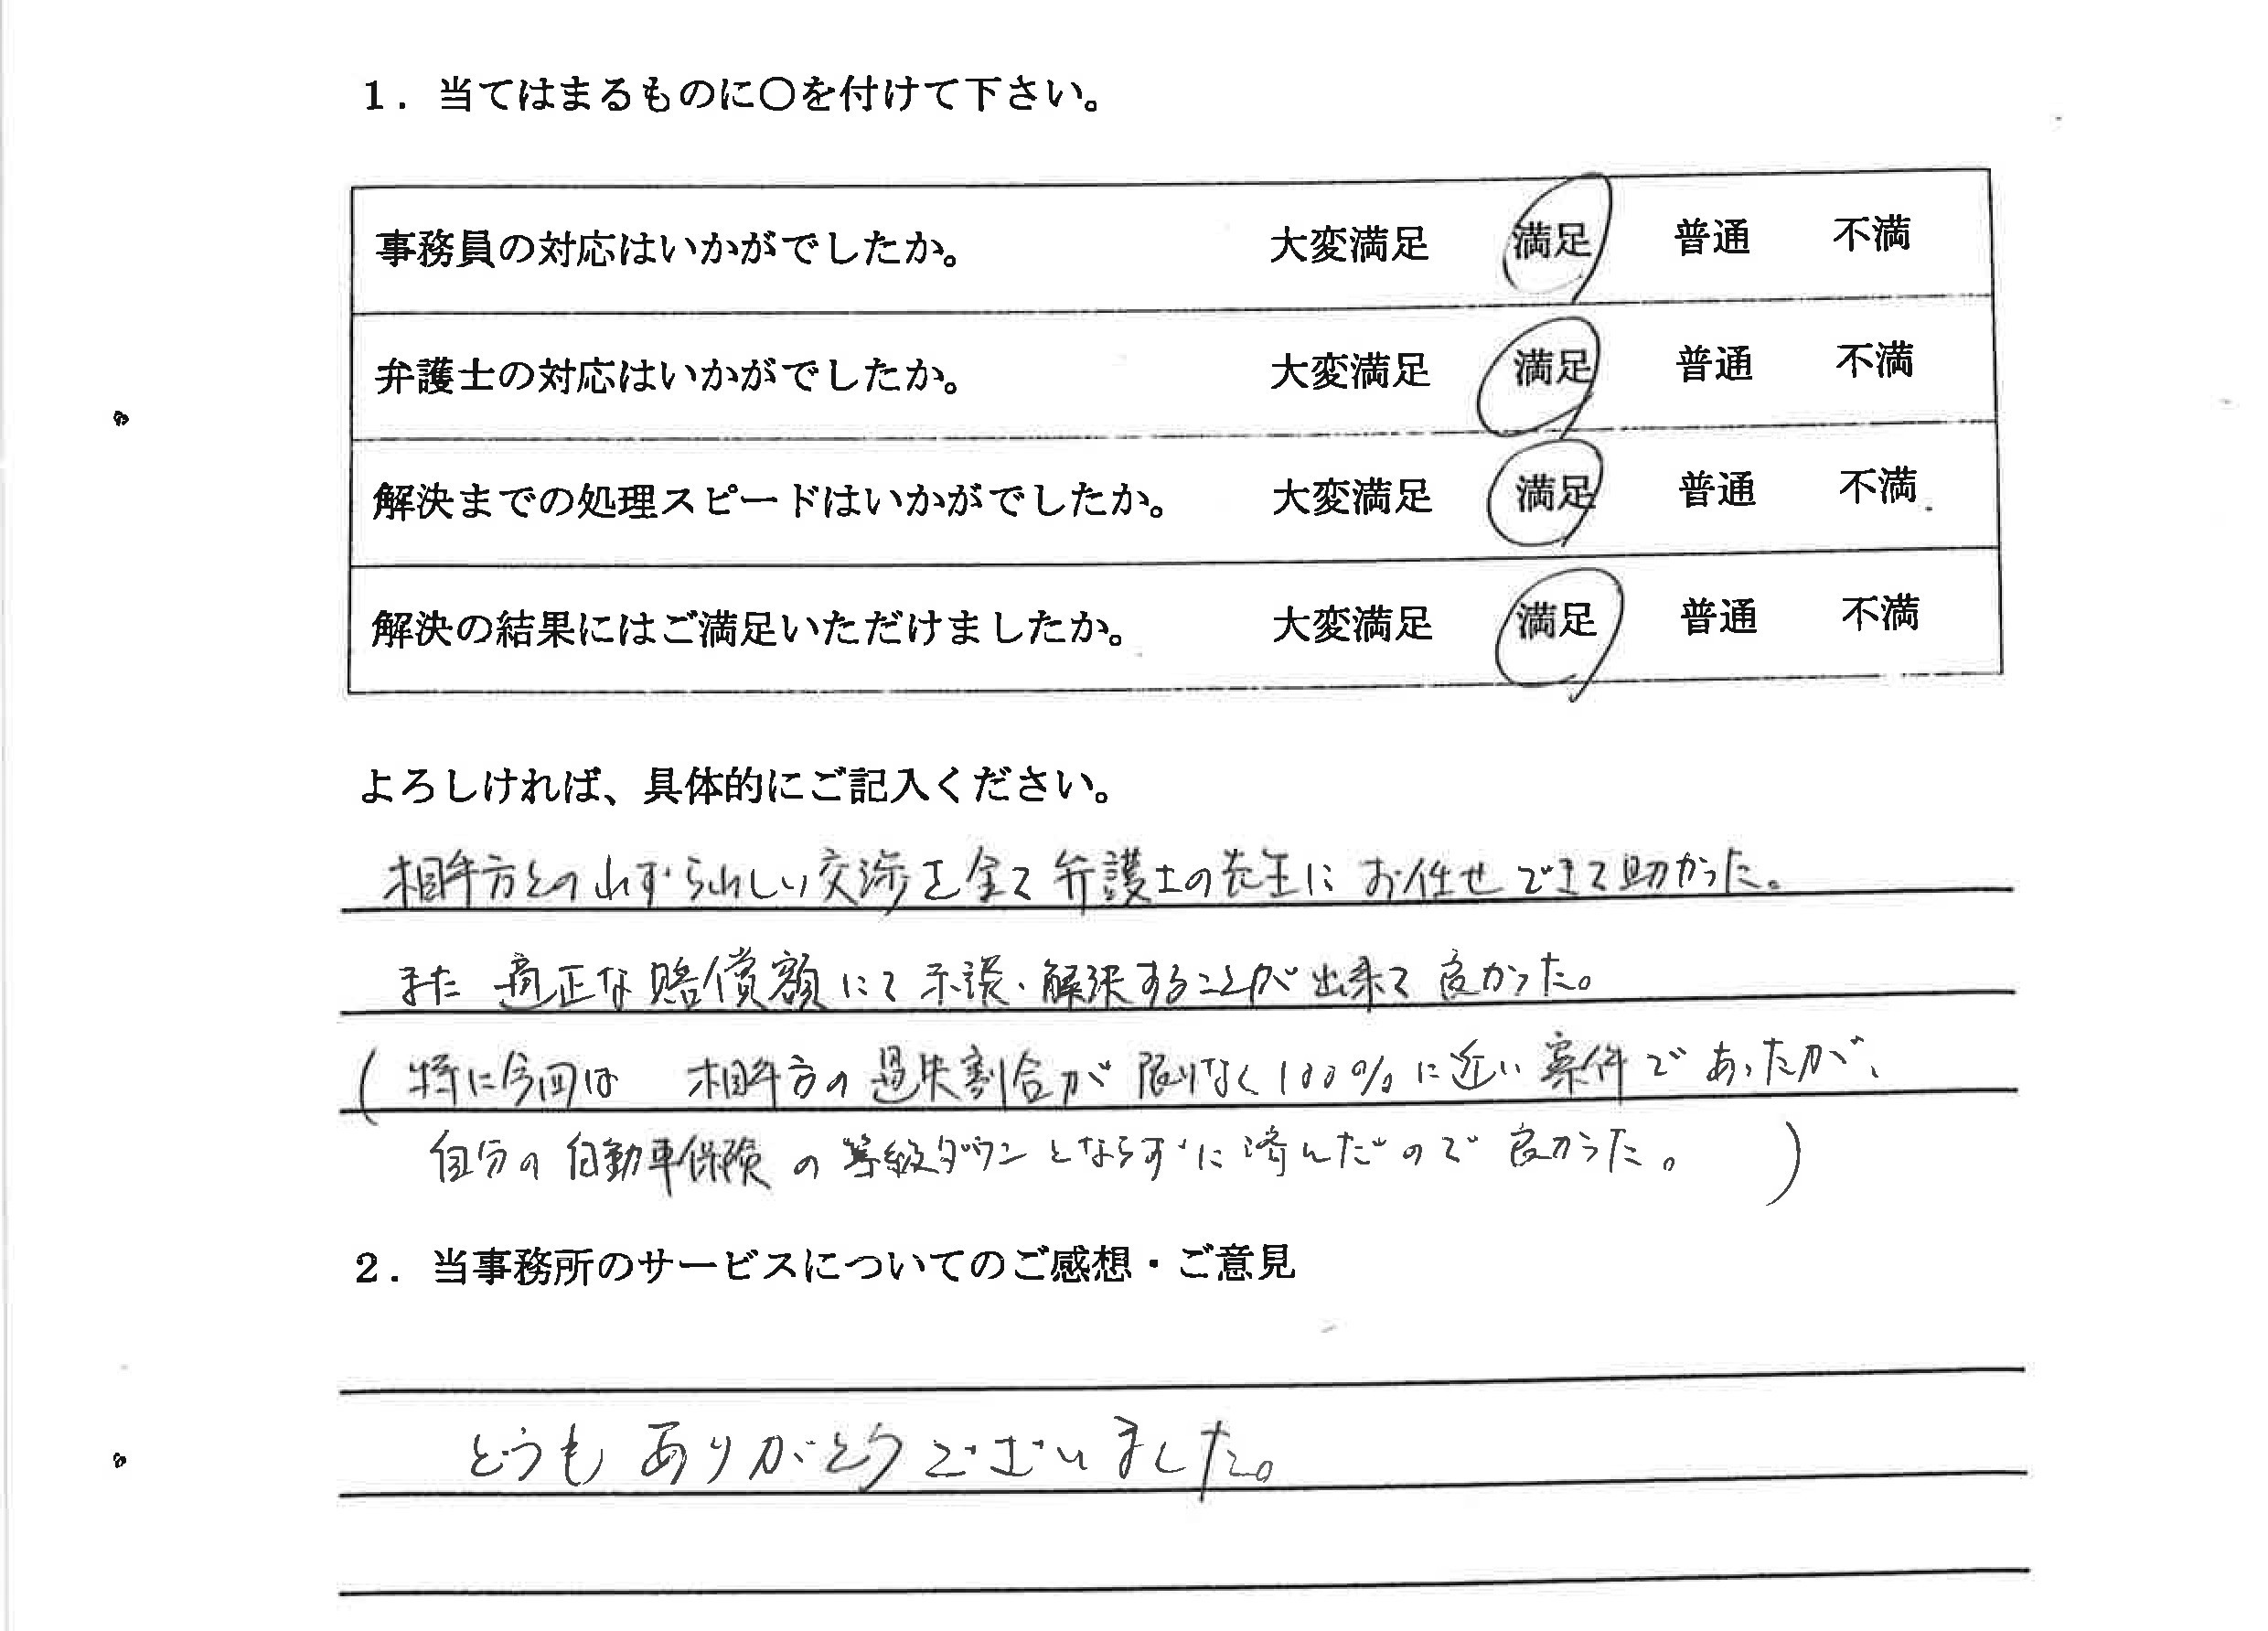 1．当てはまるものに〇を付けて下さい。
事務員の対応はいかがでしたか。 大変満足 満足 普通 不満
弁護士の対応はいかがでしたか。 大変満足 満足 普通 不満
解決までの処理スピードはいかがでしたか。 大変満足 満足 普通 不満
解決の結果にはご満足いただけましたか。 大変満足 満足 普通 不満
よろしければ、具体的にご記入ください。
相手方とのわずらわしい交渉を全て弁護士の先生にお任せできて助かった。
また適正な賠償額にて示談・解決することが出来て良かった。
(特に今回は 相手方の過失割合が限りなく100%に近い案件であったが、
自分の自動車保険の等級ダウンとならずに済んだので良かった。)
2．当事務所のサービスについてのご感想・ご意見
どうもありがとうございました。